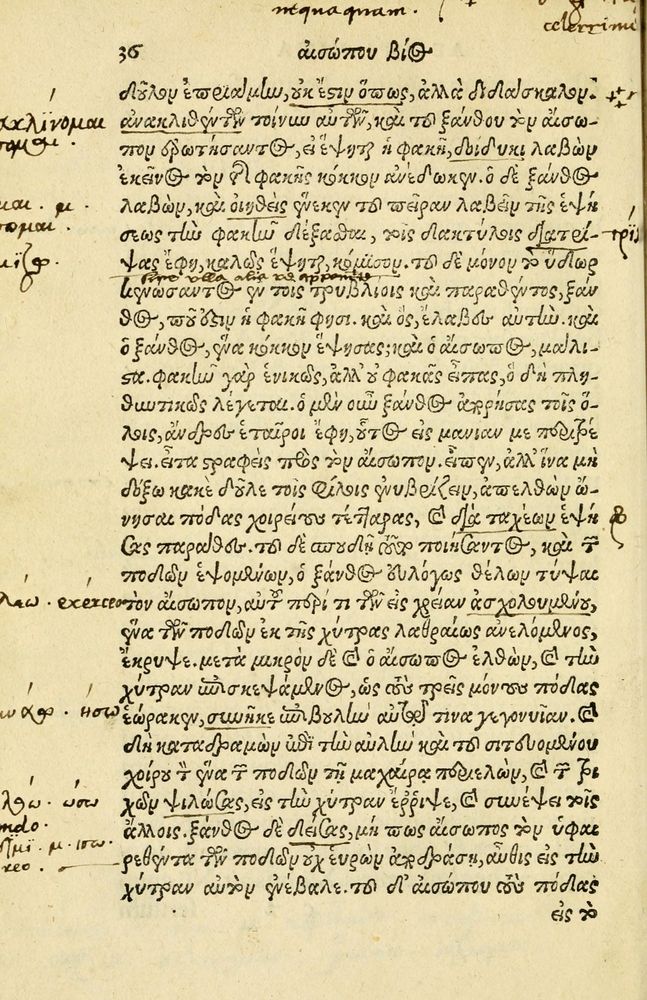 nequaquam.
celerrimè
36 αἰσώπου βίος
δοῦλον ἐπριάμην, οὐκ ἔστιν ὅπως, ἀλλὰ διδάσκαλον.
ἀνακλιθέντων τοίνυν αὐτῶν, καὶ τοῦ ξάνθου τὸν αἴσω-
που ἐρωτήσαντος, εἰ ἕψηται ἡ φακῆ, δοίδυκι λαβὼν
ἐκεῖνος τὸν τῆς φακῆς κόκκον ἀνέδωκεν. ὁ δὲ ξάνθος
λαβὼν, καὶ οἰηθεὶς ἕνεκεν τοῦ πεῖραν λαβεῖν τῆς ἑψή
σεως τὴν φακῆν δέξασθαι, τοῖς δακτύλοις διατρί- τρίβ
ψας ἔφη, καλῶς ἕψηται, κόμισον. τοῦ δὲ μόνον τὸ ὕδωρ
κενώσαντος ἐν τοῖς τρυβλίοις καὶ παραθέντος, ξάν
θος, ποῦ ἐστιν ἡ φακῆ φησι. καὶ ὃς, ἔλαβες αὐτήν. καὶ
ὁ ξάνθος, ἕνα κόκκον ἕψησας; καὶ ὁ αἴσωπος, μάλι-
στα. φακῆν γὰρ ἑνικῶς, ἀλλ' οὐ φακᾶς εἶπας, ὃ δὴ πλη-
θυντικῶς λέγεται. ὁ μὲν οὖν ξάνθος ἀπορήσας τοῖς ὅ-
λοις, ἄνδρες ἑταῖροι ἔφη, οὗτος εἰς μανίαν με περιτρέ
ψει. εἶτα στραφεὶς πρὸς τὸν αἴσωπον. εἶπεν, ἀλλ' ἵνα μὴ
δόξω κακὲ δοῦλε τοῖς φίλοις ἐνυβρίζειν, ἀπελθὼν ὤ-
νησαι πόδας χοιρείους τέτταρας, καὶ διὰ ταχέων ἑψή
σας παράθες. τοῦ δὲ σπουδῇ τοῦτο ποιήσαντος, καὶ τῶν
ποδῶν ἑψομένων, ὁ ξάνθος εὐλόγως θέλων τύψαι
exerceo τὸν αἴσωπον, αὐτοῦ περί τι τῶν εἰς χρείαν ἀσχολουμένου,
ἕνα τῶν ποδῶν ἐκ τῆς χύτρας λαθραίως ἀνελόμενος,
ἔκρυψε. μετὰ μικρὸν δὲ καὶ ὁ αἴσωπος ἐλθὼν, καὶ τὴν
χύτραν ἐπισκεψάμενος, ὡς τοὺς τρεῖς μόνους πόδας
ἑώρακεν, συνῆκε ἐπιβουλὴν αὐτῷ τινα γεγονυῖαν. καὶ
δὴ καταδραμὼν ἐπὶ τὴν αὐλὴν καὶ τοῦ σιτευομένου
χοίρου τὸν ἕνα τῶν ποδῶν τῇ μαχαίρᾳ περιελὼν, καὶ τῶν τρι
χῶν ψιλώσας, εἰς τὴν χύτραν ἔῤῥιψε, καὶ συνέψει τοῖς
ἄλλοις. ξάνθος δὲ δείσας, μή πως αἴσωπος τὸν ὑφαι
ρεθέντα τῶν ποδῶν οὐχ εὑρὼν ἀποδράσῃ, αὖθις εἰς τὴν
χύτραν αὐτὸν ἐνέβαλε. τοῦ δ' αἰσώπου τοὺς πόδας
εἰς τὸ